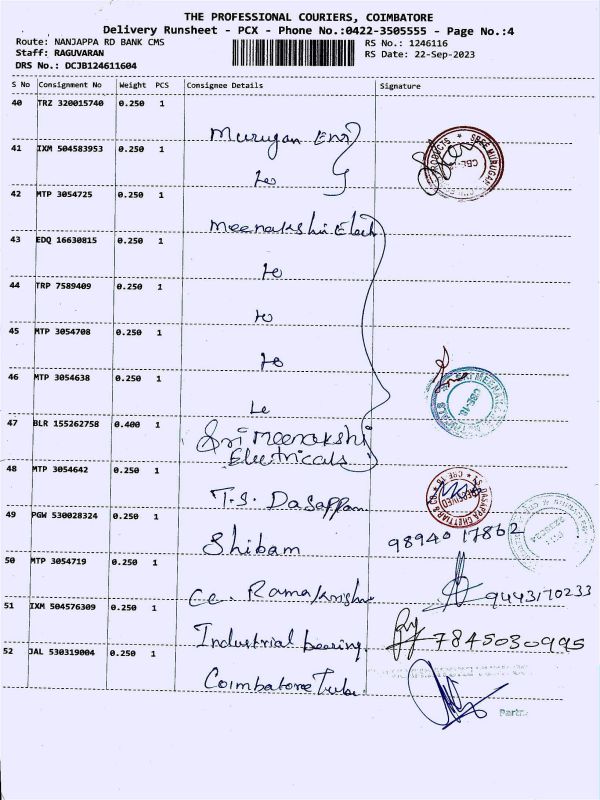 THE PROFESSIONAL COURIERS, COIMBATORE
Delivery Runsheet - PCX - Phone No.:0422-3505555 - Page No.:4
Route: NANJAPPA RD BANK CMS
RS No.: 1246116
Staff: RAGUVARAN
RS Date: 22-Sep-2023
DRS No.: DCJB124611604
S No Consignment No Weight PCS Consignee Details Signature
40 TRZ 320015740 0.250 1
Murugan
41 IXM 504583953 0.250 1
42 MTP 3054725 0.250 1
Meenakshi
43 EDQ 16630815 0.250 1
44 TRP 7589409 0.250 1
45 MTP 3054708 0.250 1
46 MTP 3054638 0.250 1
47 BLR 155262758 0.400 1
Sri Meenakshi
Electricals
48 MTP 3054642 0.250 1
T.S. Dasappam
49 PGW 530028324 0.250 1
Shibam 98940 17862
50 MTP 3054719 0.250 1
Ramakrishna 9443170233
51 IXM 504576309 0.250 1
Industrial bearing. 7845030995
52 JAL 530319004 0.250 1
Coimbatore Tube
Partn